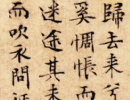 歸去來兮
奚惆悵而
迷途其未
而吹衣問征